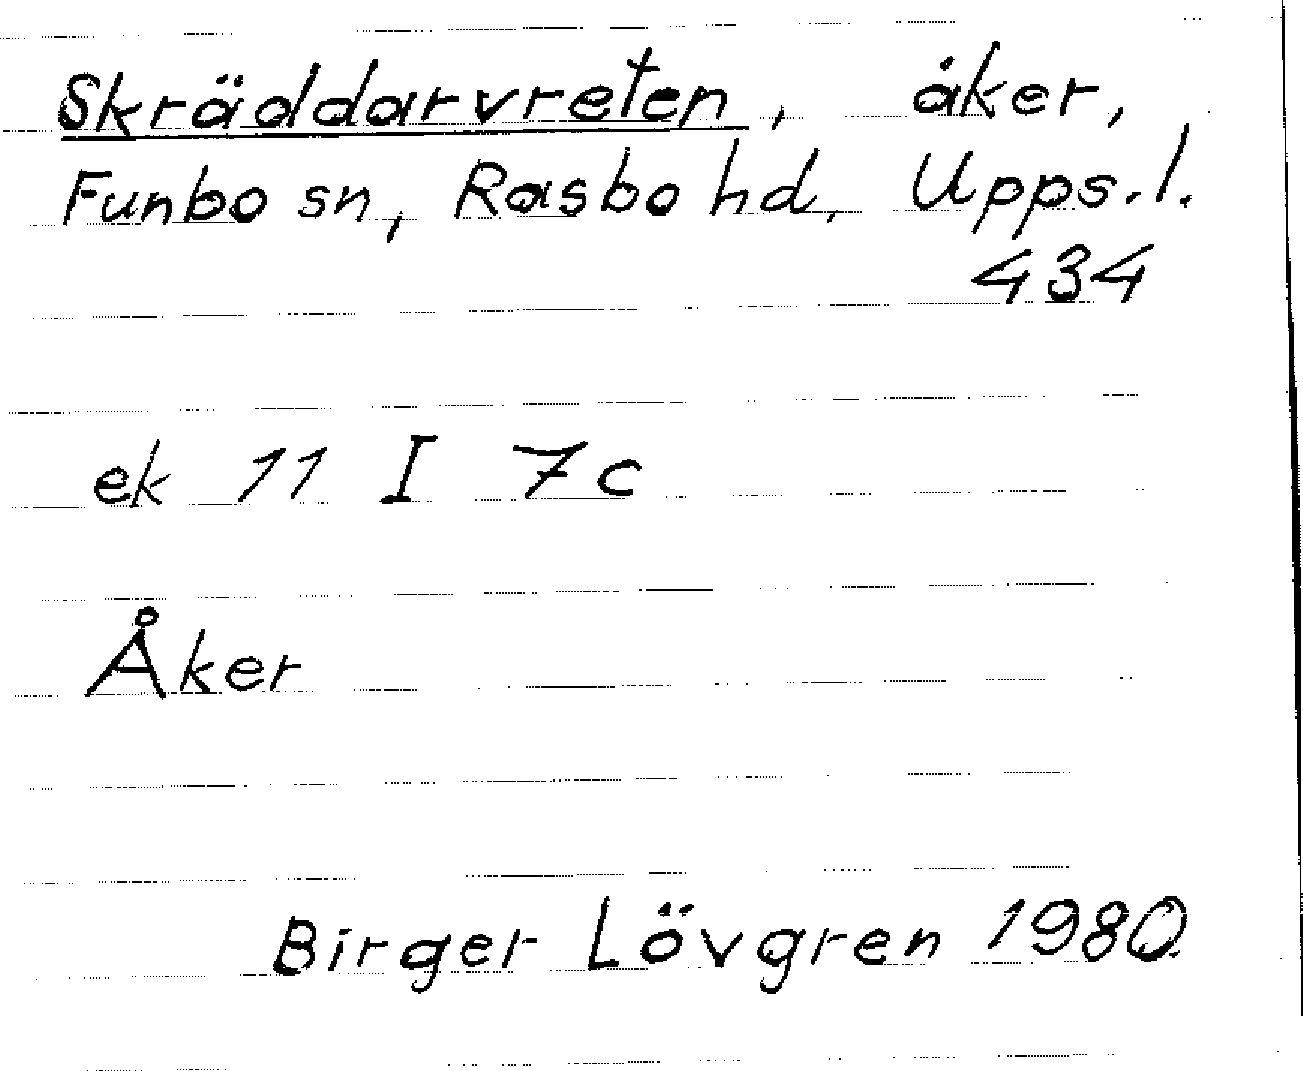 Skräddarvreten, åker,
Funbo sn, Rasbo hd, Upps.l.
434
ek 11 I 7c
Åker
Birger Lövgren 1980